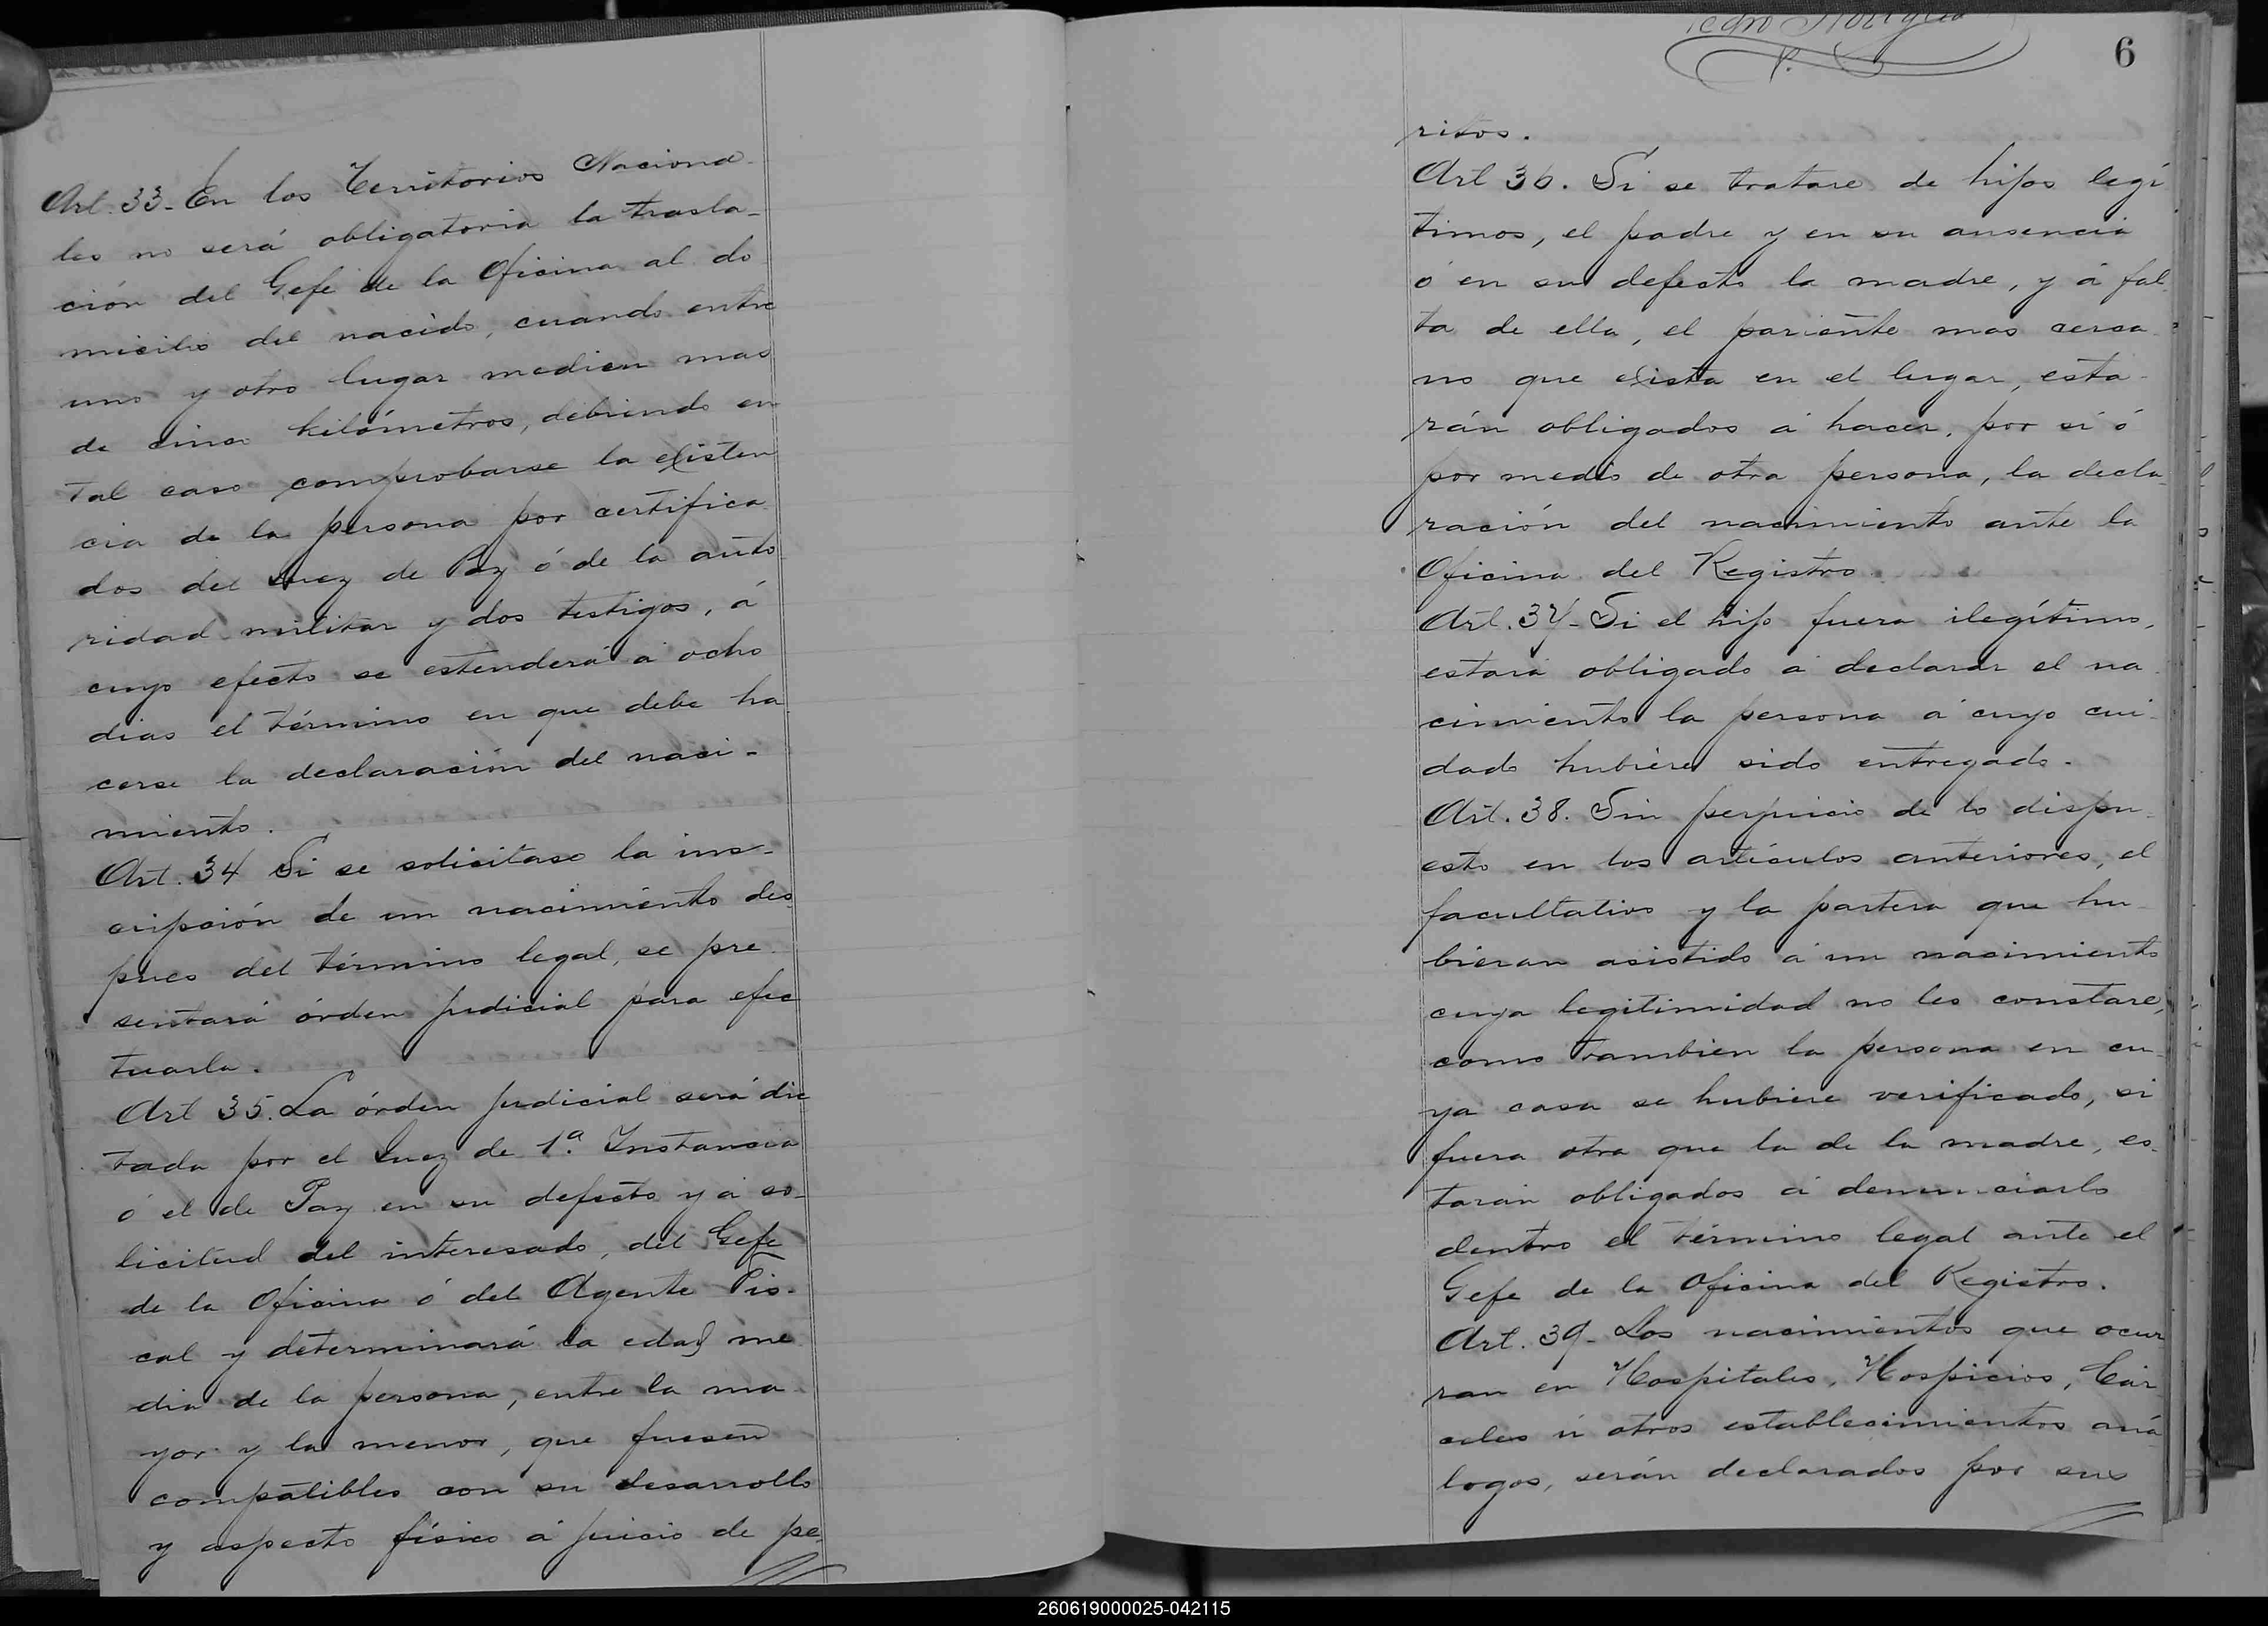 Art. 33 - En los Territorios Naciona-
les no será obligatoria la trasla-
ción del Gefe de la Oficina al do
micilio del nacido, cuando entre
uno y otro lugar medien mas
de cinco kilómetros, debiendo en
tal caso comprobarse la existen
cia de la persona por certifica
dos del Juez de Paz ó de la auto
ridad militar y dos testigos, á
cuyo efecto se estenderá á ocho
dias el término en que debe ha
cerse la declaración del naci-
miento.
Art. 34 Si se solicitase la ins-
cripción de un nacimiento des
pues del término legal, se pre
sentará órden judicial para efec
tuarla.
Art 35. La órden judicial será dic
tada por el Juez de 1ª. Instancia
ó el de Paz en su defecto y á so-
licitud del interesado, del Gefe
de la Oficina ó del Agente Fis-
cal y determinará la edad me
dia de la persona, entre la ma-
yor y la menor, que fuesen
compatibles con su desarrollo
y aspecto físico á juicio de pe
Pedro
6
ritos.
Art 36. Si se tratare de hijos legí
timos, el padre y en su ausencia
ó en su defecto la madre, y á fal
ta de ella, el pariente mas cerca
no que exista en el lugar, esta-
rán obligados á hacer, por sí ó
por medio de otra persona, la decla
ración del nacimiento ante la
Oficina del Registro.
Art. 37 - Si el hijo fuera ilegítimo,
estará obligado á declarar el na
cimiento la persona á cuyo cui-
dado hubiere sido entregado.
Art. 38. Sin perjuicio de lo dispu
esto en los artículos anteriores, el
facultativo y la partera que hu
bieran asistido á un nacimiento
cuya legitimidad no les constare,
como tambien la persona en cu-
ya casa se hubiere verificado, si
fuera otra que la de la madre, es-
tarán obligados á denunciarlo
dentro el término legal ante el
Gefe de la Oficina del Registro.
Art. 39 - Los nacimientos que ocur
ran en Hospitales, Hospicios, Cár
celes ú otros establecimientos aná
logos, serán declarados por sus
260619000025-042115